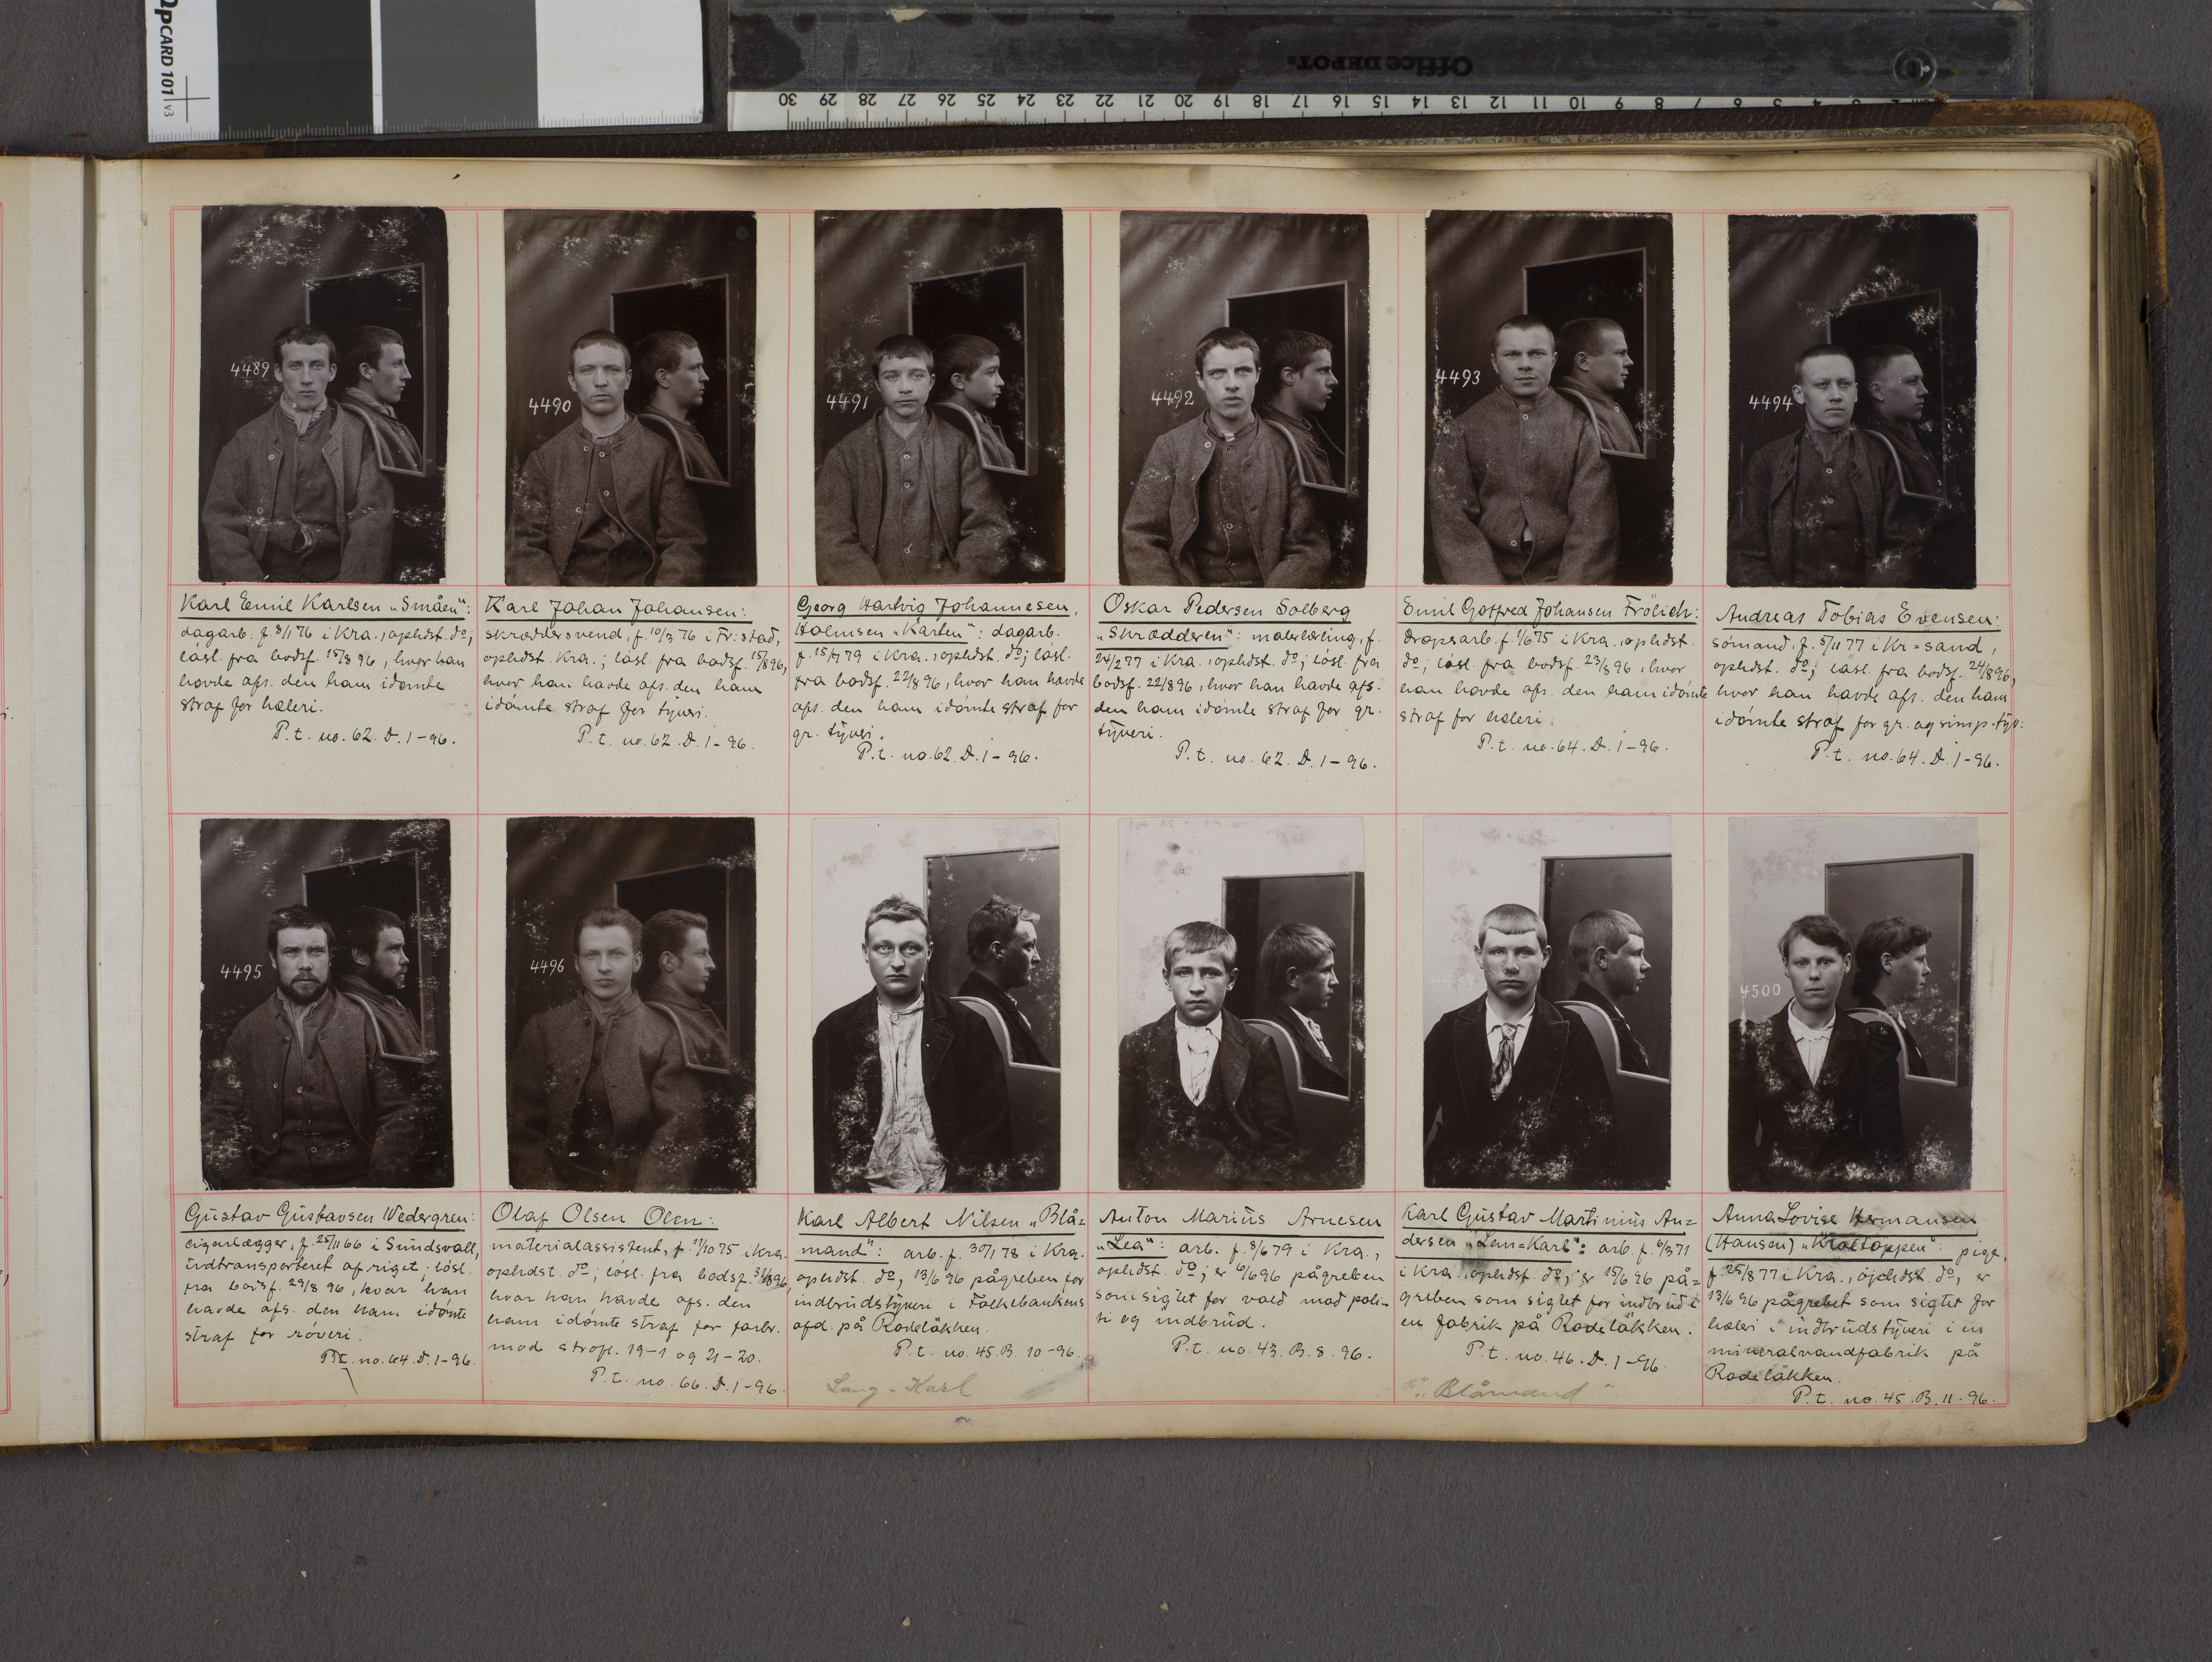 OpCARD 101 v3
Office DEPOT
30 29 28 27 26 25 24 23 22 21 20 19 18 17 16 15 14 13 12 11 10 9 8 7 6 5 4 3 2
4489
4490
4491
4492
4493
4494
Karl Emil Karlsen „Småen“:
dagarb. f. 8/1 76 i Kra., opholdst. do;
løsl. fra bodsf. 15/8 96, hvor han
havde afs. den ham idømte
straf for hæleri.
P.t. no. 62. D. 1-96.
Karl Johan Johansen:
skræddersvend, f. 10/3 76 i Fr:stad,
opholdst. Kra.; løsl. fra bodsf. 15/8 96,
hvor han havde afs. den ham
idømte straf for tyveri.
P.t. no. 62. D. 1-96.
Georg Hartvig Johannesen,
Holmsen „Karten“: dagarb.
f. 15/7 79 i Kra., opholdst. do; løsl.
fra bodsf. 22/8 96, hvor han havde
afs. den ham idømte straf for
gr. tyveri.
P.t. no. 62. D. 1-96.
Oskar Pedersen Solberg
„Skrædderen“: malerlærling, f.
24/2 77 i Kra., opholdst. do; løsl. fra
bodsf. 22/8 96, hvor han havde afs.
den ham idømte straf for gr.
tyveri.
P.t. no. 62. D. 1-96.
Emil Gotfred Johansen Frölich:
dropsarb. f. 1/6 75 i Kra., opholdst.
do; løsl. fra bodsf. 23/8 96, hvor
han havde afs. den ham idømte
straf for hæleri.
P.t. no. 64. D. 1-96.
Andreas Tobias Evensen:
sømand, f. 5/11 77 i Kr=sand,
opholdst. do; løsl. fra bodsf. 24/8 96,
hvor han havde afs. den ham
idømte straf for gr. og simp. tyv:
P.t. no. 64. D. 1-96.
4495
4496
4500
Gustav Gustavsen Wedergren:
cigarlægger, f. 25/11 66 i Sundsvall,
udtransporteret af riget; løsl.
fra bodsf. 29/8 96, hvor han
havde afs. den ham idømte
straf for røveri.
P.t. no. 64. D. 1-96.
Olaf Olsen Olen:
materialassistent, f. 11/10 75 i Kra.
opholdst. do; løsl. fra bodsf. 31/8 96,
hvor han havde afs. den
ham idømte straf for forbr.
mod strafl. 19-1 og 21-20.
P.t. no. 66. D. 1-96.
Karl Albert Nilsen „Blå=
mand“: arb. f. 30/1 78 i Kra.
opholdst. do, 13/6 96 pågreben for
indbrudstyveri i Folkebankens
afd. på Rodeløkken.
P.t. no. 45. B. 10-96.
Lang-Karl
Anton Marius Arnesen
„Lea“: arb. f. 8/6 79 i Kra.,
opholdst. do; er 6/6 96 pågreben
som sigtet for vold mod poli-
ti og indbrud.
P.t. no. 43. B. 8. 96.
Karl Gustav Martinius An=
dersen „Lan=Karl“: arb. f. 6/3 71
i Kra., opholdst. do; er 15/6 96 på=
greben som sigtet for indbrud i
en fabrik på Rodeløkken.
P.t. no. 46. D. 1-96.
„Blåmand“
Anna Lovise Hermansen
(Hansen) „Kroltoppen“: pige,
f. 25/8 77 i Kra., opholdst. do, er
13/6 96 pågrebet som sigtet for
hæleri i indbrudstyveri i en
mineralvandfabrik på
Rodeløkken.
P.t. no. 45. B. 11-96.